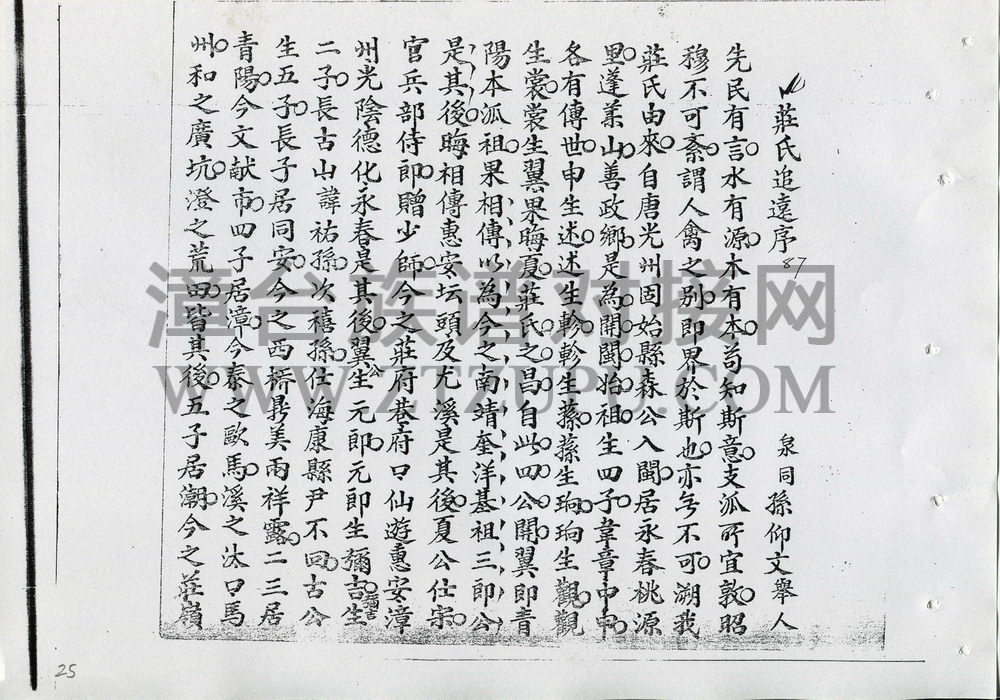 莊氏追遠序 87
泉同孫仰文舉人
先民有言水有源木有本苟知斯意支派所宜敦昭
穆不可紊謂人禽之别即界於斯也亦無不可溯我
莊氏由來自唐光州固始縣森公入閩居永春桃源
里蓬萊山善政鄉是為開閩始祖生四子韋章中申
各有傳世申生述述生軫軫生蓀蓀生晌晌生觀觀
生裳裳生翼果晦夏莊氏之昌自此四公開翼即青
陽本派祖果相傳以為今之南靖奎洋基祖三郎公
是其後晦相傳惠安坛頭及尤溪是其後夏公仕宗
官兵部侍郎贈少師今之莊府巷府口仙遊惠安漳
州光陰德化永春是其後翼公生元郎元郎生彌吉彌吉生
二子長古山諱祐孫次禧孫仕海康縣尹不回古公
生五子長子居同安今之西桥鼻美雨祥露二三居
青陽今文献市四子居漳今泰之歐馬溪之汰口馬
州和之廣坑澄之荒田皆其後五子居潮今之莊嶺
漳台族谱对接网
WWW.ZTZUPU.COM
25